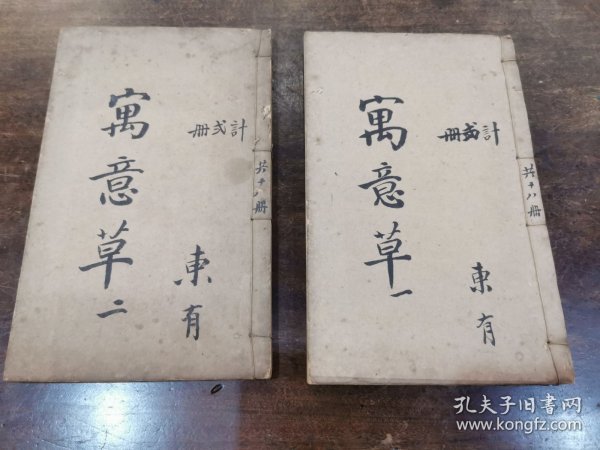 寓意草二
計弍册
共十八册
東有
寓意草一
計弍册
共十八册
東有
孔夫子旧书网
www.kongfz.com